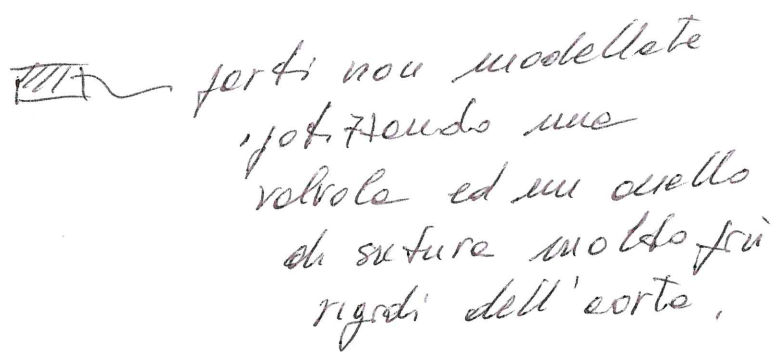 parti non modellate
ipotizzando una
valvola ed un anello
di sutura molto più
rigidi dell'aorta.